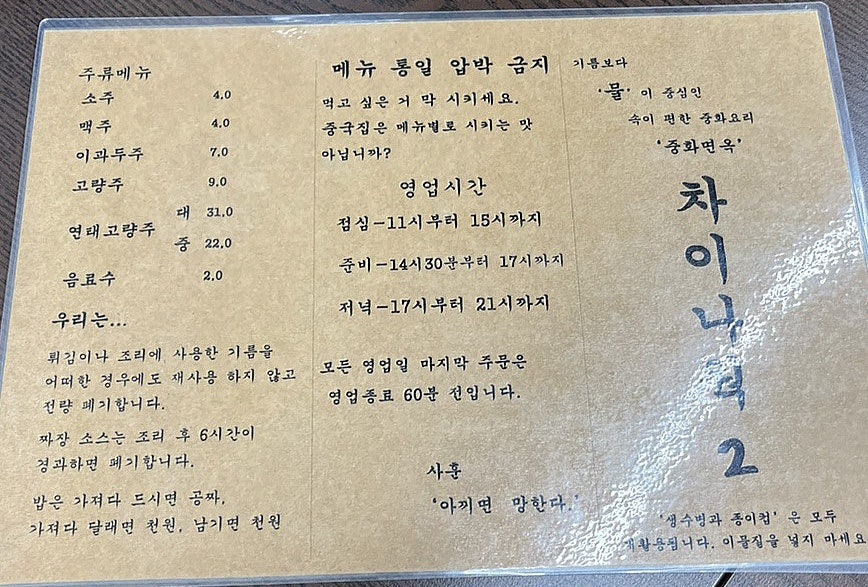 주류메뉴
소주 4.0
맥주 4.0
이과두주 7.0
고량주 9.0
연태고량주 대 31.0
중 22.0
음료수 2.0
우리는...
튀김이나 조리에 사용한 기름을
어떠한 경우에도 재사용 하지 않고
전량 폐기합니다.
짜장 소스는 조리 후 6시간이
경과하면 폐기합니다.
밥은 가져다 드시면 공짜,
가져다 달래면 천원, 남기면 천원
메뉴 통일 압박 금지
먹고 싶은 거 막 시키세요.
중국집은 메뉴별로 시키는 맛
아닙니까?
영업시간
점심-11시부터 15시까지
준비-14시30분부터 17시까지
저녁-17시부터 21시까지
모든 영업일 마지막 주문은
영업종료 60분 전입니다.
사훈
'아끼면 망한다.'
기름보다
'물'이 중심인
속이 편한 중화요리
'중화면옥'
차이나
2
'생수병과 종이컵' 은 모두
재활용됩니다. 이물질을 넣지 마세요